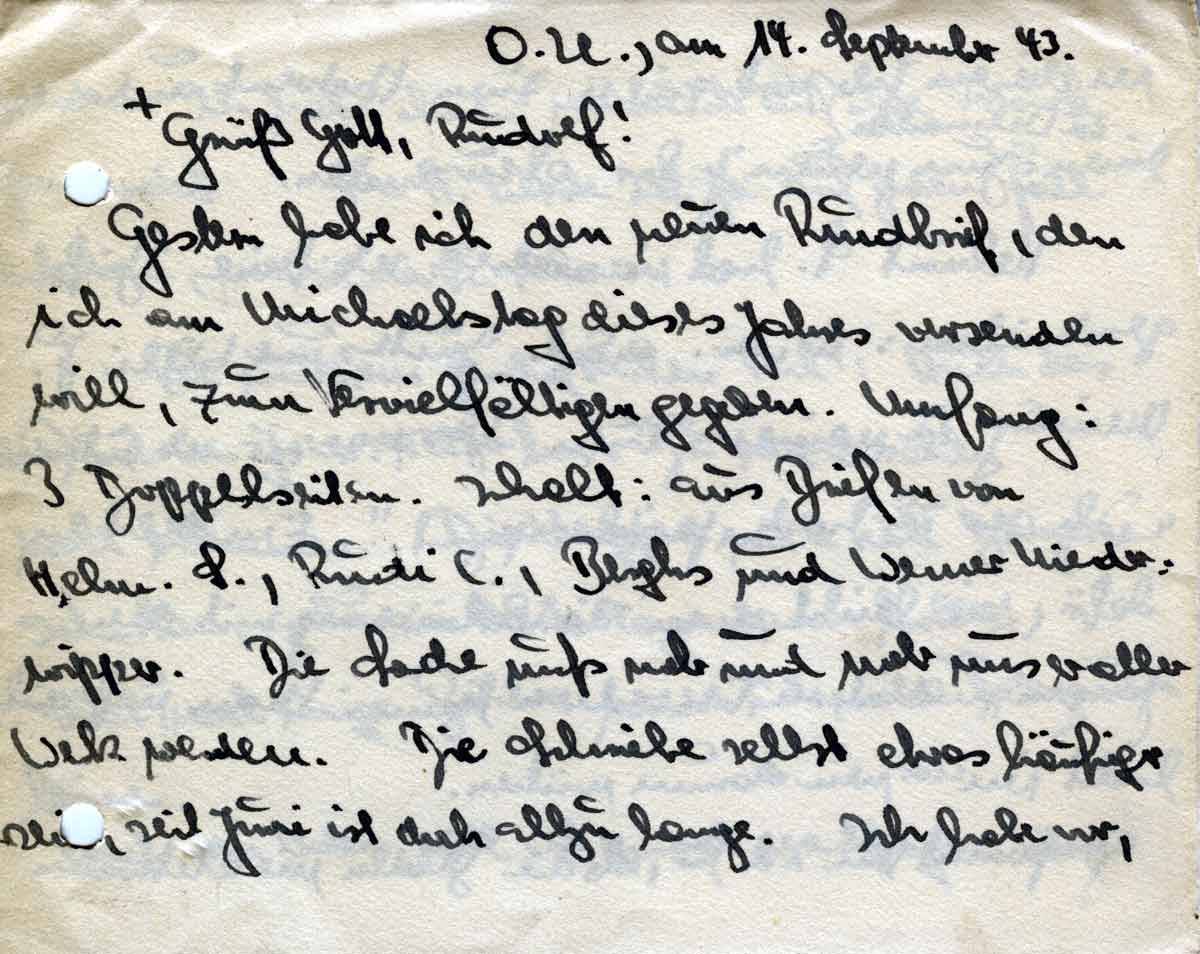 O.U., am 14. September 43.
+ Grüß Gott, Rudolf!
Gestern habe ich den neuen Rundbrief, den
ich am Michaelstag dieses Jahres versenden
will, zum Vervielfältigen gegeben. Umfang:
3 Doppelseiten. Inhalt: aus Briefen von
Helm. S., Rudi C., Berghs und Werner Nieder-
wipper. Die Sache muß mehr und mehr unser aller
Werk werden. Die selbst etwas häufiger
sein, seit Juni ist doch allzu lange. Ich habe vor,